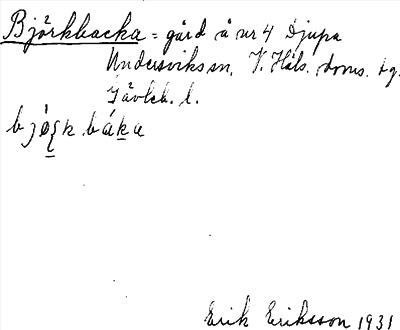 Björkbacka = gård å nr 4 Djupa
Undersviks sn, V. Häls. doms. tg.
Gävleb. l.
Erik Eriksson 1931